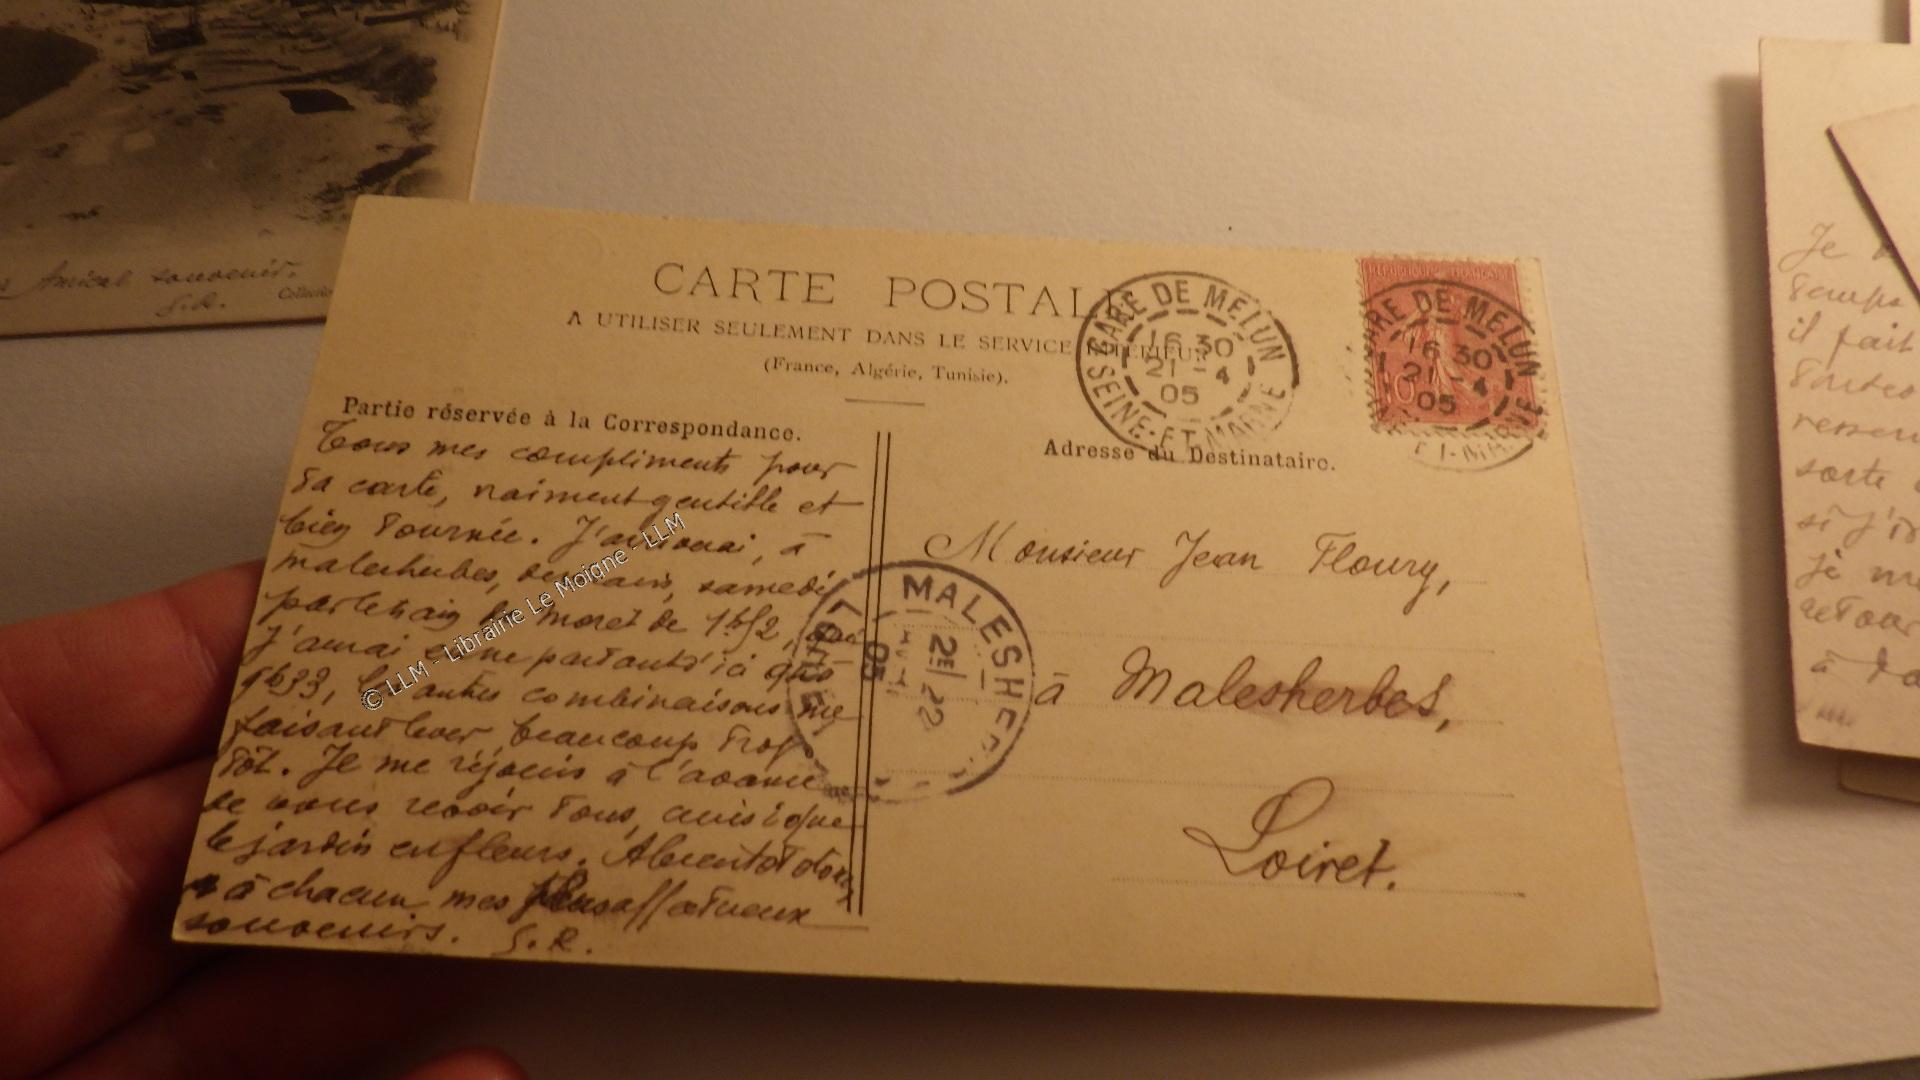 Amical souvenir.
S.R.
CARTE POSTALE
A UTILISER SEULEMENT DANS LE SERVICE INTÉRIEUR
(France, Algérie, Tunisie).
Partie réservée à la Correspondance.
Tous mes compliments pour
ta carte, vraiment gentille et
bien tournée. J'arriverai, à
malesherbes, demain, samedi
par le train de moret de 1h1/2,
J'aurai en ne partant d'ici qu'à
9h33, les autres combinaisons me
faisant lever beaucoup trop
tôt. Je me réjouis à l'avance
de vous revoir tous, ainsi que
le jardin en fleurs. A bientôt donc,
à chacun mes plus affectueux
souvenirs. S.R.
Adresse du Destinataire.
Monsieur Jean Floury,
à Malesherbes,
Loiret.
GARE DE MELUN
16 30
21 - 4
05
SEINE-ET-MARNE
REPUBLIQUE FRANÇAISE
10
GARE DE MELUN
16 30
21 - 4
05
MALESHERBES
2E
22
05
LOIRET
© LLM - Librairie Le Moigne - LLM
Je
temps
il fait
toutes
sorte
si j'
je me
retour
à